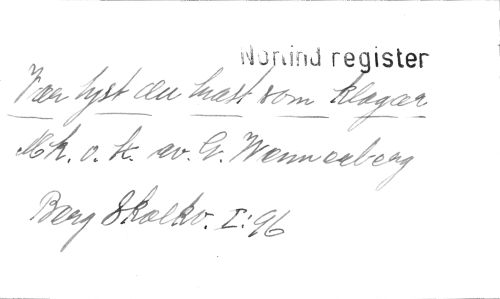 Norlind register
Var tyst du kvast som klagar
Mk. o. K. av. G. Wennerberg
Berg Skolkv. I: 96